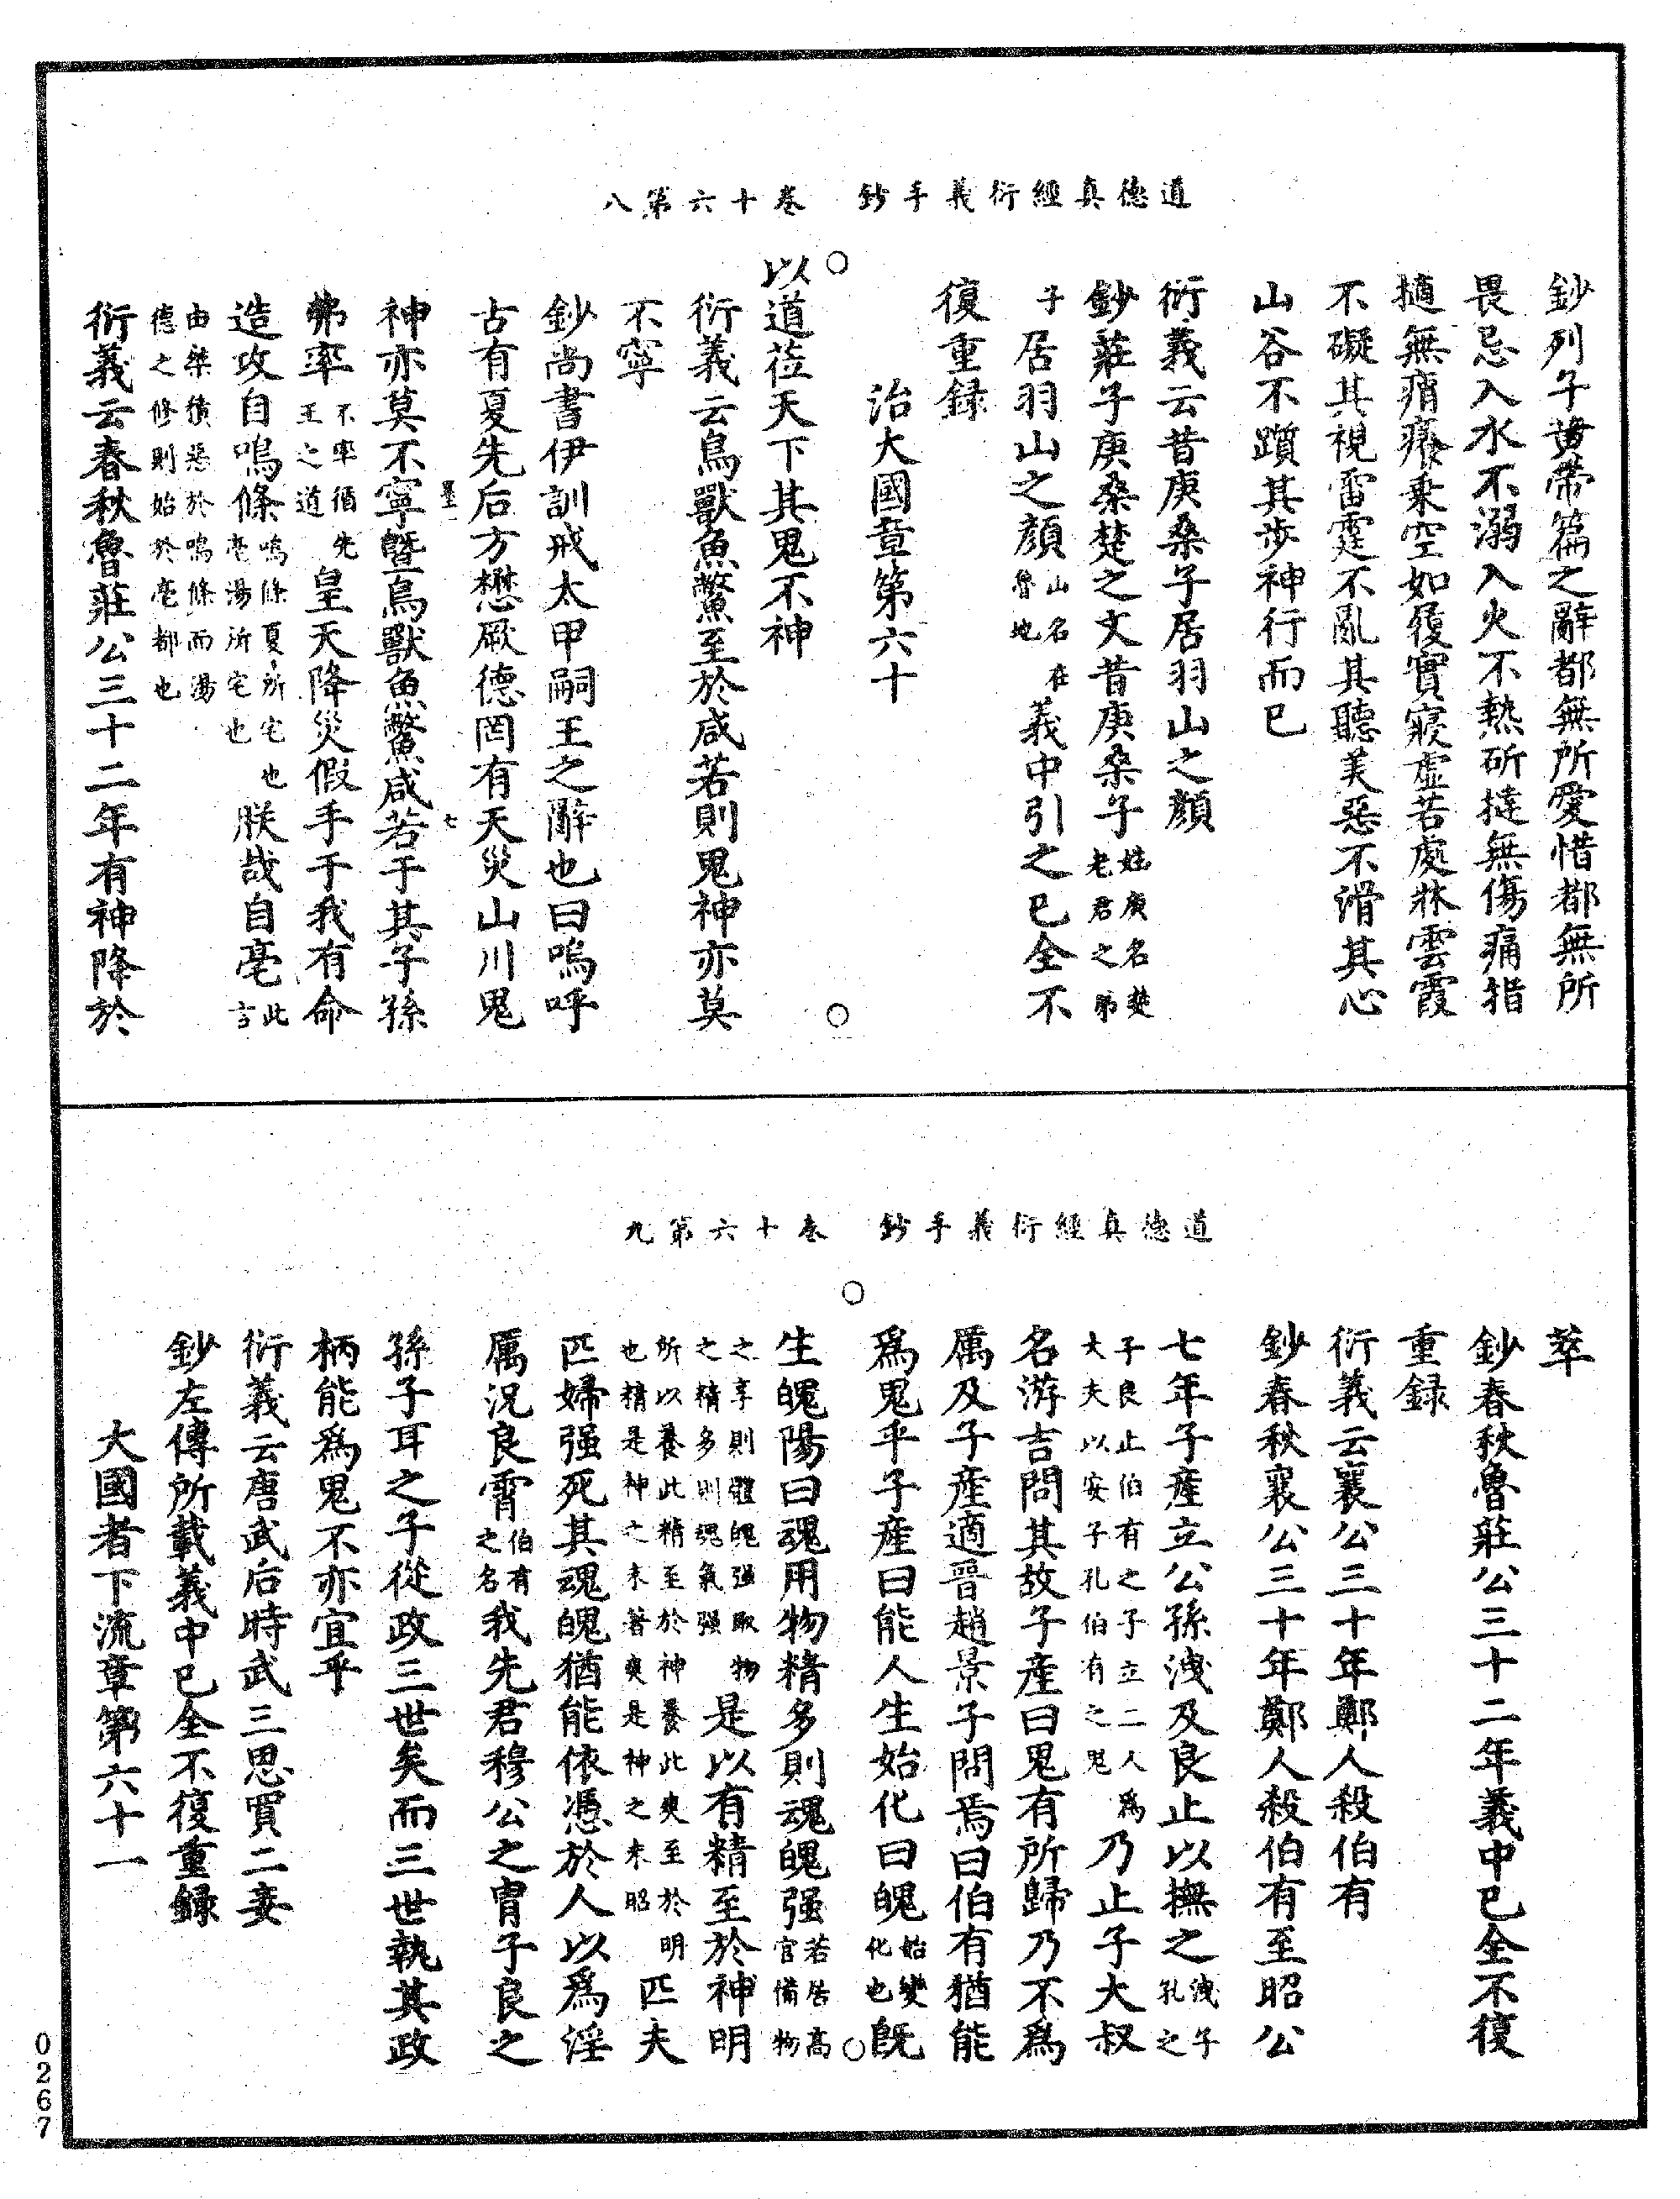 道德真經衍義手鈔　卷十六第八
鈔列子黃帝篇之辭都無所愛惜都無所
畏忌入水不溺入火不熱斫撻無傷痛指
擿無痟癢乘空如履實寢虛若處牀雲霞
不礙其視雷霆不亂其聽美惡不滑其心
山谷不躓其步神行而已
衍義云昔庚桑子居羽山之顏
鈔莊子庚桑楚之文昔庚桑子姓庚名桑楚老君之弟
子居羽山之顏山名在魯地義中引之已全不
復重録
治大國章第六十
以道莅天下其鬼不神
衍義云鳥獸魚鱉至於咸若則鬼神亦莫
不寧
鈔尚書伊訓戒太甲嗣王之辭也曰嗚呼
古有夏先后方懋厥德罔有天災山川鬼
神亦莫不寧曁鳥獸魚鱉咸若于其子孫
弗率不率循先王之道皇天降災假手于我有命
造攻自鳴條鳴條夏所宅也亳湯所宅也朕哉自亳此言
由桀積惡於鳴條而湯德之修則始於亳都也
衍義云春秋魯莊公三十二年有神降於
道德真經衍義手鈔　卷十六第九
莘
鈔春秋魯莊公三十二年義中已全不復
重録
衍義云襄公三十年鄭人殺伯有
鈔春秋襄公三十年鄭人殺伯有至昭公
七年子產立公孫洩及良止以撫之洩子孔之
子良止伯有之子立二人爲大夫以安子孔伯有之鬼乃止子大叔
名游吉問其故子產曰鬼有所歸乃不爲
厲及子產適晉趙景子問焉曰伯有猶能
爲鬼乎子產曰能人生始化曰魄始變化也旣
生魄陽曰魂用物精多則魂魄强若居高官備物
之享則體魄强取物之精多則魂氣强是以有精至於神明
所以養此精至於神養此爽至於明也精是神之未著爽是神之未昭匹夫
匹婦强死其魂魄猶能依憑於人以爲淫
厲況良霄伯有之名我先君穆公之胄子良之
孫子耳之子從政三世矣而三世執其政
柄能爲鬼不亦宜乎
衍義云唐武后時武三思買二妾
鈔左傳所載義中已全不復重録
大國者下流章第六十一
0267